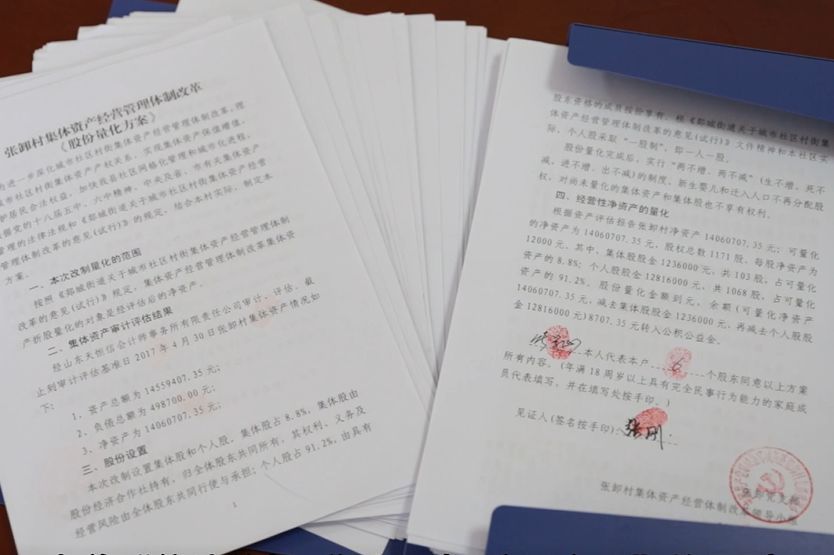 张卸村集体资产经营管理体制改革
《股份量化方案》
为进一步深化城市社区村街集体资产经营管理体制改革,理
城市社区村街集体资产产权关系,实现集体资产保值增值,
护居民合法权益,加快我县社区网格化管理和城市化进程,
据党的十八届五中、六中精神,中央及省、市有关集体资产
管理的法律法规和《郯城街道关于城市社区村街集体资产经营
管理体制改革的意见(试行)》的规定,结合本村实际,制定本
方案。
一、本次改制量化的范围
按照《郯城街道关于城市社区村街集体资产经营管理体制
改革的意见(试行)》规定,集体资产经营管理体制改革集体资
产折股量化的对象是经评估后的净资产。
二、集体资产审计评估结果
经山东天恒信会计师事务所有限责任公司审计、评估,截
止到审计评估基准日2017年4月30日张卸村集体资产情况如
下:
1、资产总额为14559407.35元;
2、负债总额为498700.00元;
3、净资产为14060707.35元;
三、股份设置
本次改制设置集体股和个人股,集体股占8.8%,集体股由
股份经济合作社持有,归全体股东共同所有,其权利、义务及
经营风险由全体股东共同行使与承担;个人股占91.2%,由具有
1
股东资格的成员按份享有,根《郯城街道关于城市社区村街集
体资产经营管理体制改革的意见(试行)》文件精神和本社区实
际,个人股采取“一股制”,即一人一股。
股份量化完成后,实行“两不增、两不减”(生不增、死不
减,进不增、出不减)的制度、新生婴儿和迁入人口不再分配股
权,对尚未量化的集体资产和集体股也不享有权利。
四、经营性净资产的量化
根据资产评估报告张卸村净资产14060707.35元;可量化
的净资产为14060707.35元,股权总数1171股,每股净资产为
12000元,其中,集体股股金1236000元,共103股,占可量化
资产的8.8%;个人股股金12816000元,共1068股,占可量化
资产的91.2%。股份量化金额到元,余额(可量化净资产
14060707.35元,减去集体股股金1236000元,再减去个人股股
金12816000元)8707.35元转入公积公益金。
本人代表本户6个股东同意以上方案
所有内容。(年满18周岁以上具有完全民事行为能力的家庭成
员代表填写,并在填写处按手印。)
见证人(签名按手印):张刚
张卸党支部
张卸村集体资产经营体制改革领导小组